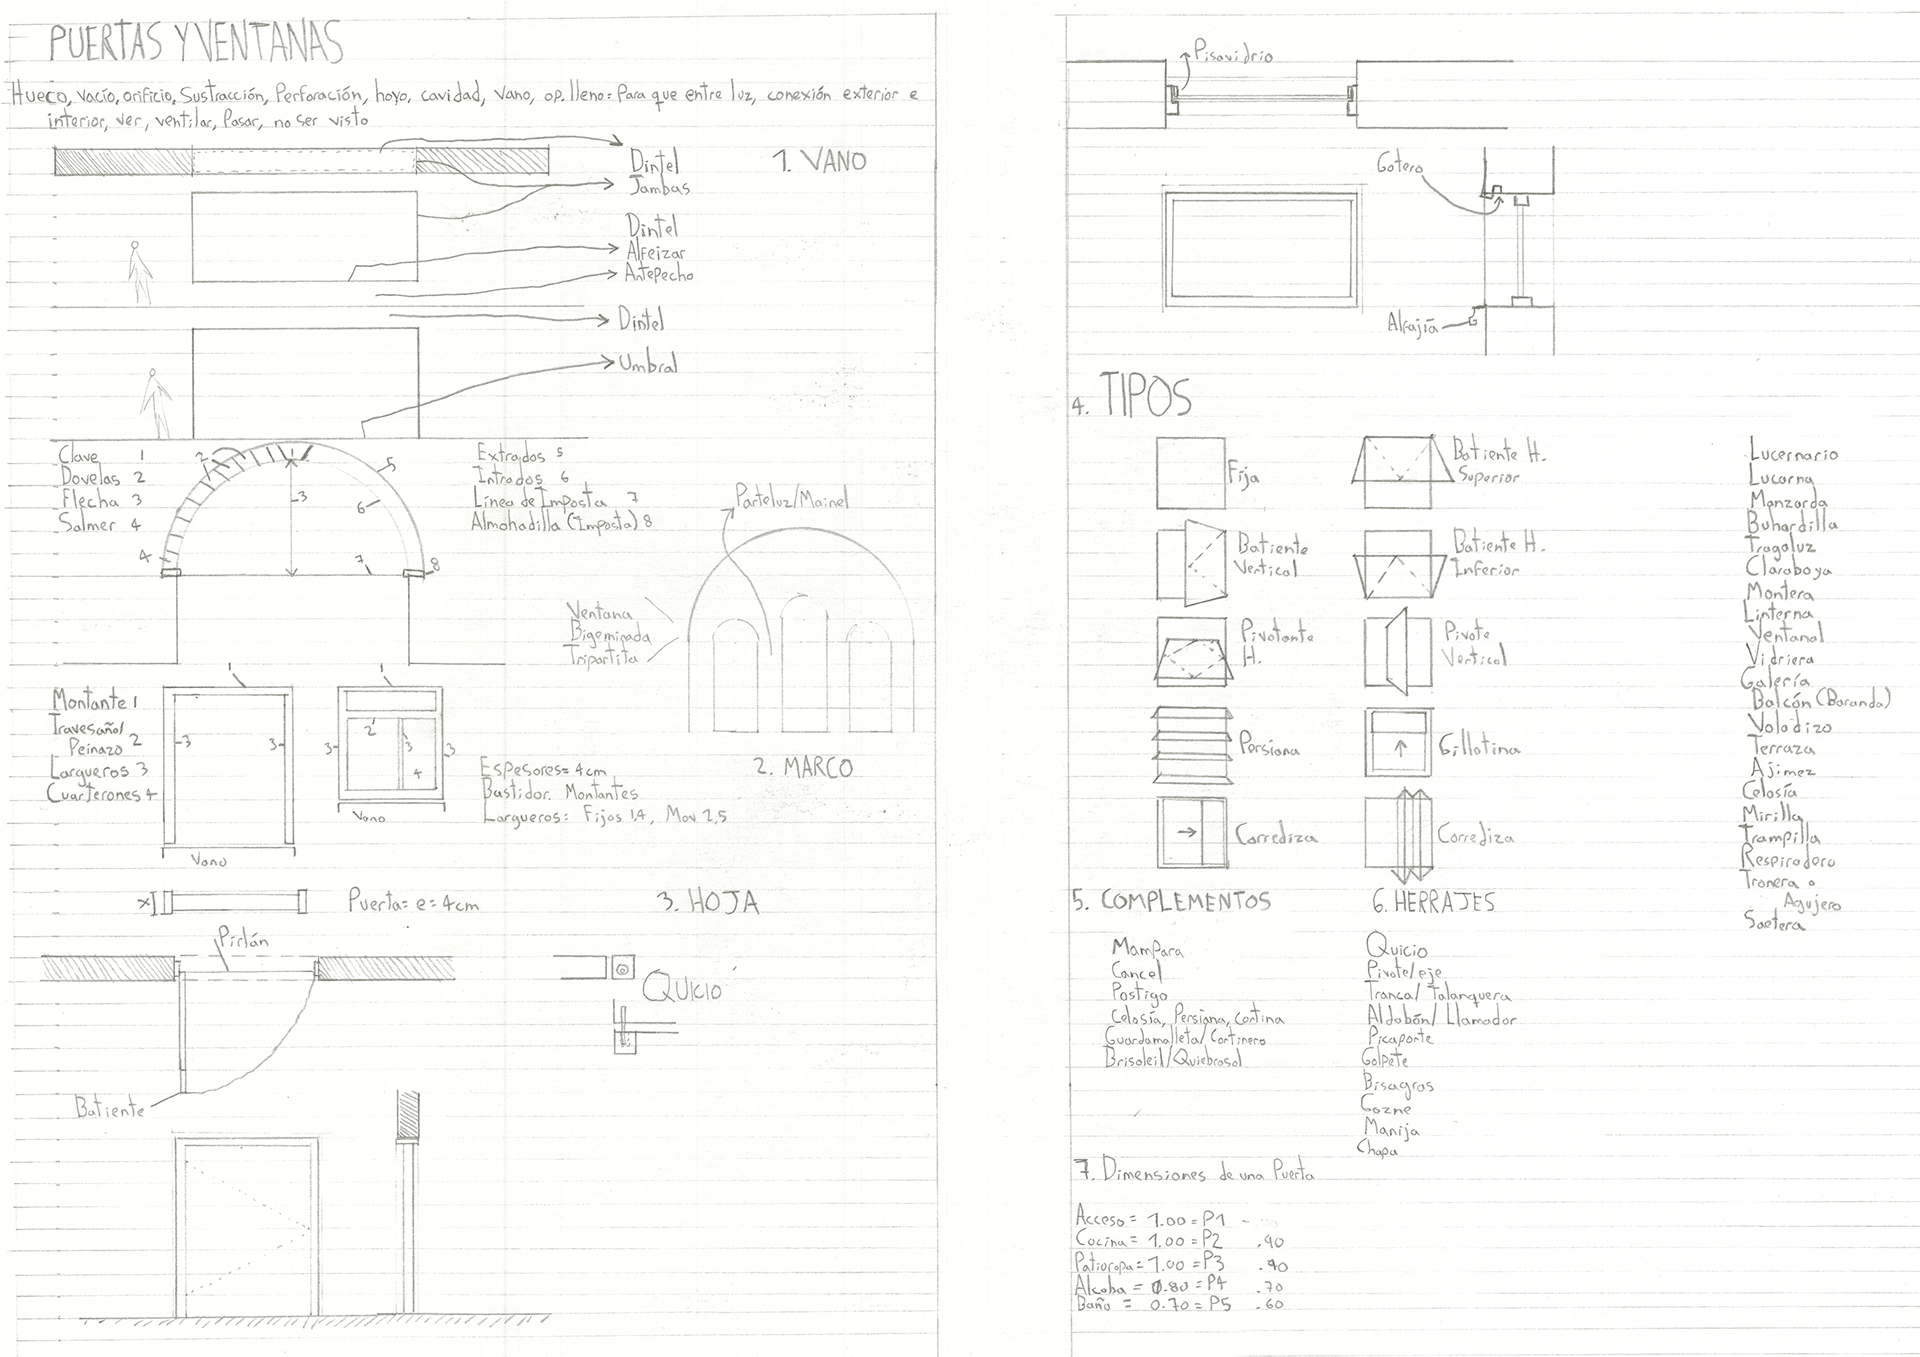 PUERTAS Y VENTANAS
Hueco, vacío, orificio, Sustracción, Perforación, hoyo, cavidad, vano, op. lleno: Para que entre luz, conexión exterior e
interior, ver, ventilar, Pasar, no ser visto
Dintel
Jambas
1. VANO
Dintel
Alfeizar
Antepecho
Dintel
Umbral
Clave 1
Dovelas 2
Flecha 3
Salmer 4
2
1
5
3
6
4
7
8
Extrados 5
Intrados 6
Línea de Imposta 7
Almohadilla (Imposta) 8
Parteluz/Mainel
Ventana
Bigeminada
Tripartita
Montante 1
Travesaño/
Peinazo 2
Largueros 3
Cuarterones 4
1
3
3
Vano
1
2
3
3
3
4
Vano
Espesores= 4cm
Bastidor. Montantes
Largueros: Fijos 1,4, Mov 2,5
2. MARCO
x
Puerta= e= 4cm
3. HOJA
Pirlán
Quicio
Batiente
Pisavidrio
Gotero
Alfajía
4. TIPOS
Fija
Batiente H.
Superior
Batiente
Vertical
Batiente H.
Inferior
Pivotante
H.
Pivote
Vertical
Persiana
Gillotina
Corrediza
Corrediza
Lucernario
Lucarna
Manzarda
Buhardilla
Tragaluz
Claraboya
Montera
Linterna
Ventanal
Vidriera
Galería
Balcón (Baranda)
Voladizo
Terraza
Ajimez
Celosía
Mirilla
Trampilla
Respiradero
Tronera o
Agujero
Saetera
5. COMPLEMENTOS
Mampara
Cancel
Postigo
Celosía, Persiana, Cortina
Guardamalleta/Cortinero
Brisoleil/Quiebrasol
6. HERRAJES
Quicio
Pivote/eje
Tranca/Talanquera
Aldabón/Llamador
Picaporte
Golpete
Bisagras
Gozne
Manija
Chapa
7. Dimensiones de una Puerta
Acceso = 1.00 = P1 -
Cocina = 1.00 = P2 .90
Patioropa = 1.00 = P3 .90
Alcoba = 0.80 = P4 .70
Baño = 0.70 = P5 .60